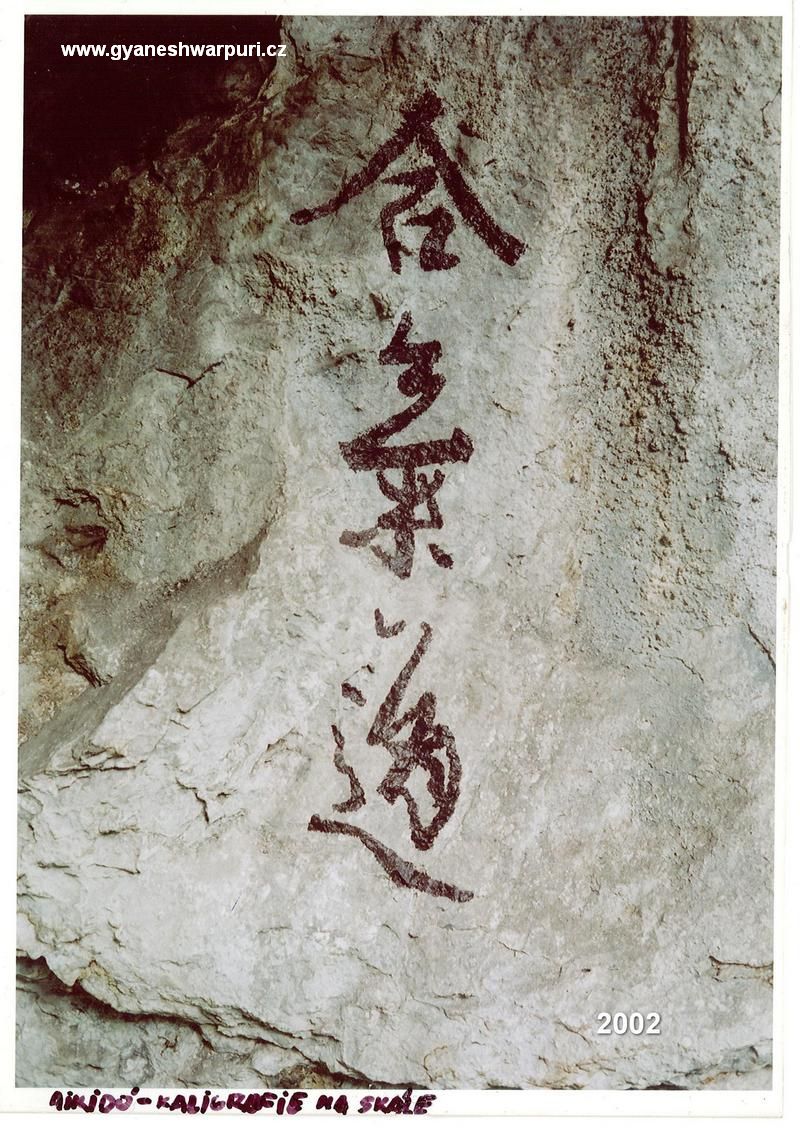 www.gyaneshwarpuri.cz
合
氣
道
2002
AIKIDÓ - KALIGRAFIE NA SKÁLE